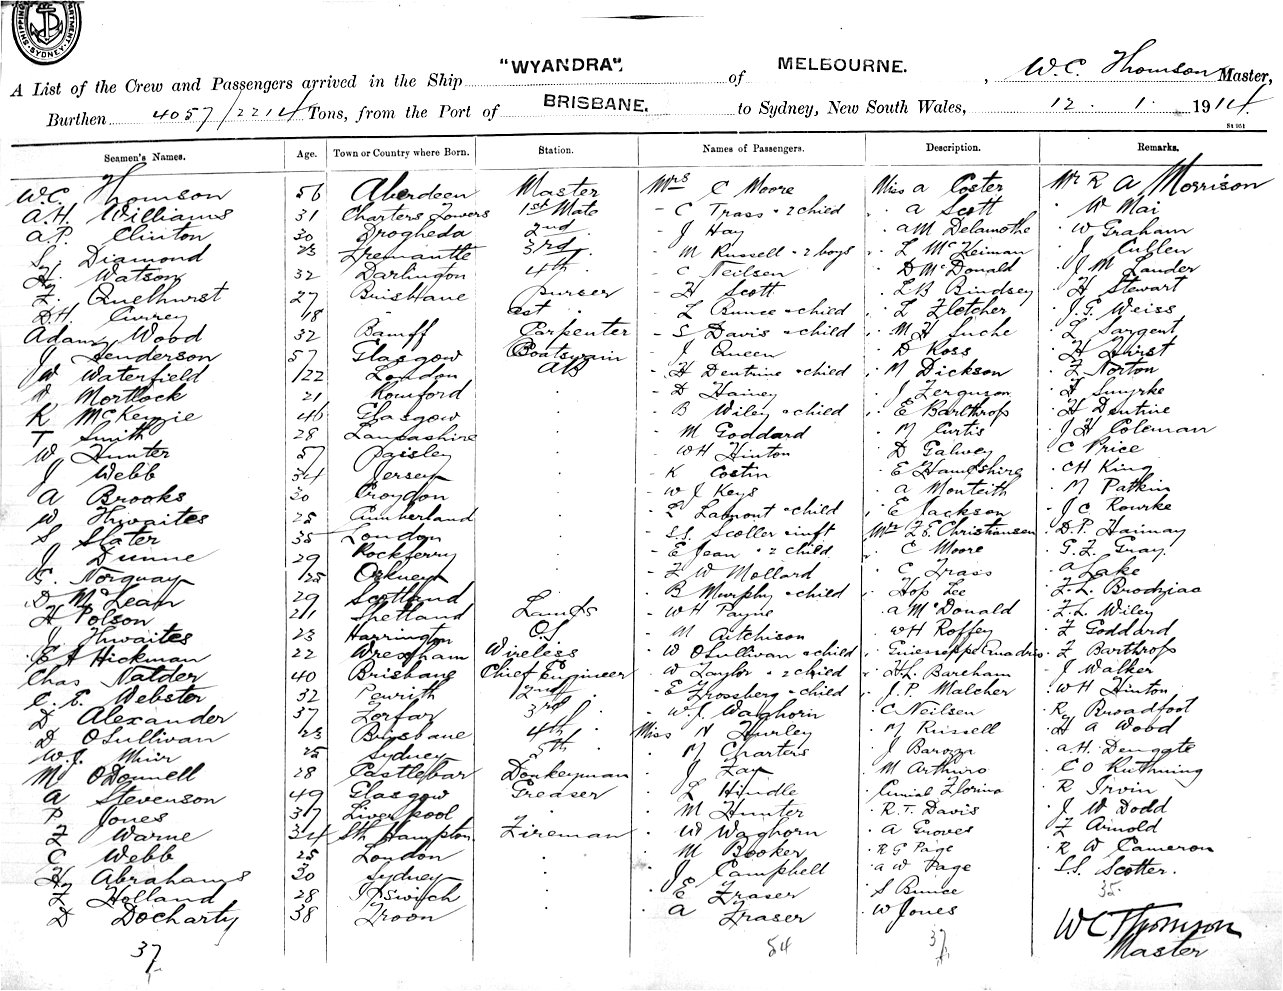 SHIPPING DEPARTMENT. SYDNEY.
"WYANDRA". MELBOURNE. W.C. Thomson
A List of the Crew and Passengers arrived in the Ship of , Master,
BRISBANE.
Burthen 4057/2214 Tons, from the Port of to Sydney, New South Wales, 12. 1. 1914.
Seamen's Names. Age. Town or Country where Born. Station. Names of Passengers. Description. Remarks.
W.C. Thomson 56 Aberdeen Master Mrs C Moore Miss A Coster Mr R A Morrison
A.H. Williams 31 Charters Towers 1st Mate - C Trass & 2 child " A Scott " W Mai
A.P. Clinton 30 Drogheda 2nd " - J Hay " AM Delamothe " W Graham
S. Diamond 23 Fremantle 3rd " - M Russell & 2 boys " L McKeiman " J Cullen
H. Watson 32 Darlington 4th " - C Neilsen " D McDonald " J M Lander
F. Quelhurst 27 Brisbane purser - H Scott " LB Bindsey " H Stewart
D.H. Currey 18 " ast " - L Bunce & child " L Fletcher " J.G. Weiss
Adam Wood 32 Banff Carpenter - S Davis & child " M H Suche " L Sargent
J Henderson 57 Glasgow Boatswain - J Queen " D Ross " H Hirst
W Waterfield 22 London AB - H Dentine & child " M Dickson " F Norton
Mortlock 21 Romford " - D Hainey " J Ferguson " H Smyrke
K McKenzie 46 Glasgow " - B Wiley & child " E Barlthrop " H Dentine
T Smith 28 Lancashire " - M Goddard " M Curtis " J H Coleman
W Hunter 57 Paisley " - WH Hinton " D Galvey " C Price
J Webb 34 Jersey " - K Costin " E Hampshire " CH King
A Brooks 30 Croydon " - W J Keys " A Monteith " M Patkin
W Thwaites 25 Cumberland " - L Lamont & child " E Jackson " J C Rourke
S Slater 35 London " - S.S. Scoller & inft Mrs F.E. Christiansen " D.P. Hainay
J Dunne 29 Rockferry " - E Jean & 2 child " C Moore " G.F. Gray
G. Norquay 25 Orkney " - F W Mollard " C Trass " A Lake
D McLean 29 Scotland " - B Murphy & child " Hop Lee " F.L. Brodziac
H Polson 21 Shetland Lamps - WH Payne " A McDonald " F.L. Wiley
J Thwaites 23 Harrington O.S - M Aitchison " WH Roffey " F Goddard
E A Hickman 22 Wrexham Wireless - W OSullivan & child " Guiesseppe Quadris " F Barthrop
Chas Nalder 40 Brisbane Chief Engineer - W Taylor & 2 child " H.L. Bareham " J Walker
C. E. Webster 32 Penrith 2nd " - E Frossberg & child " J.P. Malcher " WH Hinton
D Alexander 37 Forfar 3rd " - W.J. Waghorn " C Neilsen " R Broadfoot
D OSullivan 23 Brisbane 4th " Miss N Hurley " M Russell " H A Wood
W.J. Muir 25 Sydney 5th " " M Charters " J Barozza " A.H. Dengate
M ODonnell 28 Castlebar Donkeyman " J Fay " M Arthuro " C O Ruthning
A Stevenson 49 Glasgow Greaser " L Hindle " Florino " R Irvin
P Jones 37 Liverpool " " M Hunter " R.T. Davis " J W Dodd
F Warne 34 Sth Hampton Fireman " W Waghorn " A Groves " F Arnold
C Webb 25 London " " M Booker " R G Page " R W Cameron
H Abrahams 30 Sydney " " J Campbell " A W Page " S.S. Scotter.
F Holland 28 Ipswich " " E Fraser " S Bunce 35
D Docharty 38 Troon " A Fraser " W Jones WC Thomson
37 54 37 Master